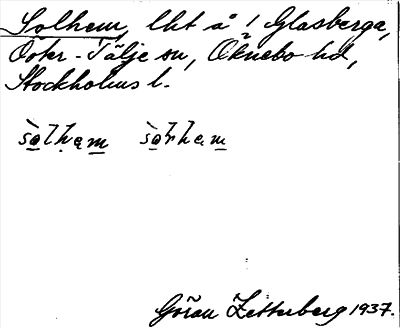 Solhem, lht å 1/2 Glasberga,
Öster-Tälje sn, Öknebo hd,
Stockholms l.
Göran Zetterberg 1937.